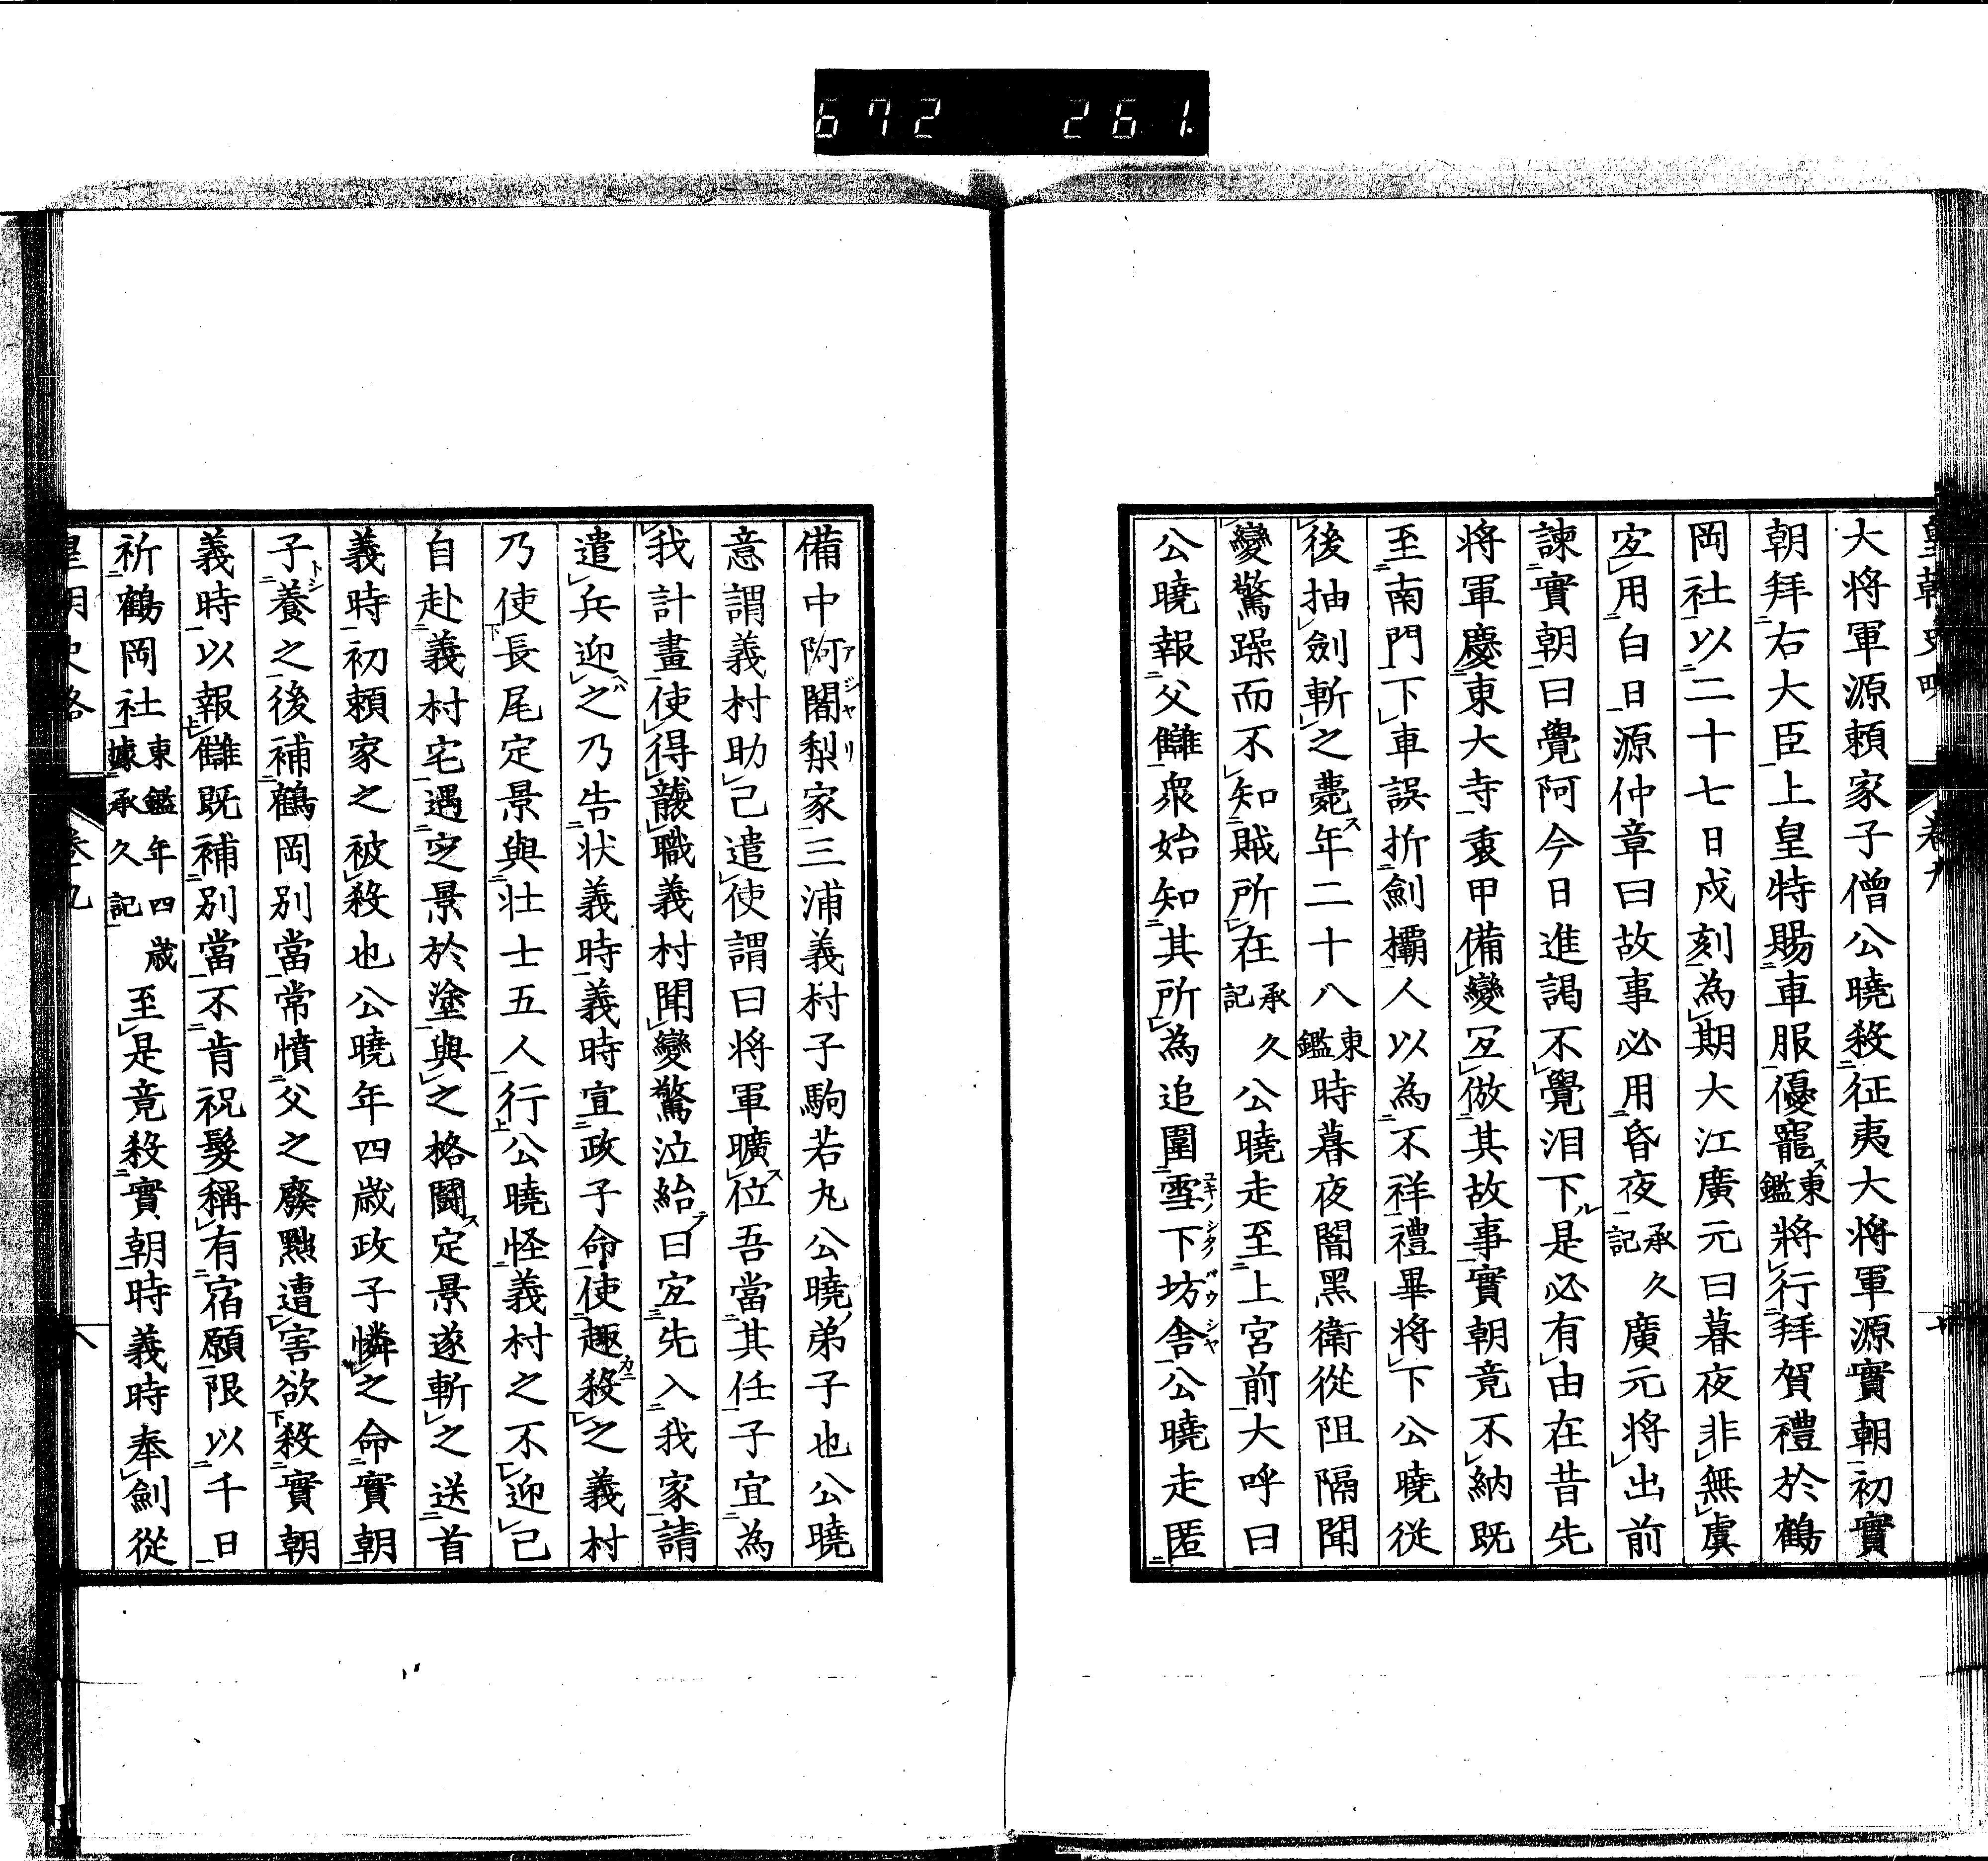 672 261
大将軍源頼家子僧公曉殺征夷大将軍源實朝初實
朝拜右大臣上皇特賜車服優寵東鑑将行拜賀禮於鶴
岡社以二十七日戌刻為期大江廣元曰暮夜非無虞
宜用白日源仲章曰故事必用昏夜承久記廣元将出前
諫實朝曰覺阿今日進謁不覺泪下是必有由在昔先
将軍慶東大寺衷甲備變宜倣其故事實朝竟不納既
至南門下車誤折劍欛人以為不祥禮畢将下公曉従
後抽劍斬之薨年二十八東鑑時暮夜闇黑衛從阻隔聞
變驚躁而不知賊所在承久記公曉走至上宮前大呼曰
公曉報父讎衆始知其所為追圍雪下坊舎公曉走匿
備中阿闍梨家三浦義村子駒若丸公曉弟子也公曉
意謂義村助己遣使謂曰将軍曠位吾當其任子宜為
我計畫使得襲職義村聞變驚泣紿曰宜先入我家請
遣兵迎之乃告状義時義時宣政子命使趣殺之義村
乃使長尾定景與壮士五人行公曉怪義村之不迎己
自赴義村宅遇定景於塗與之格闘定景遂斬之送首
義時初頼家之被殺也公曉年四歳政子憐之命實朝
子養之後補鶴岡別當常憤父之廢黜遭害欲殺實朝
義時以報讎既補別當不肯祝髮稱有宿願限以千日
祈鶴岡社東鑑年四歳據承久記至是竟殺實朝時義時奉劍從